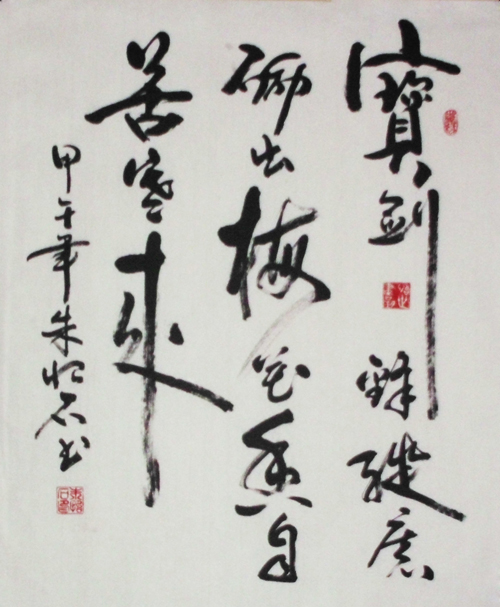 寶劍鋒從磨
礪出梅花香自
苦寒來
甲午年朱石书